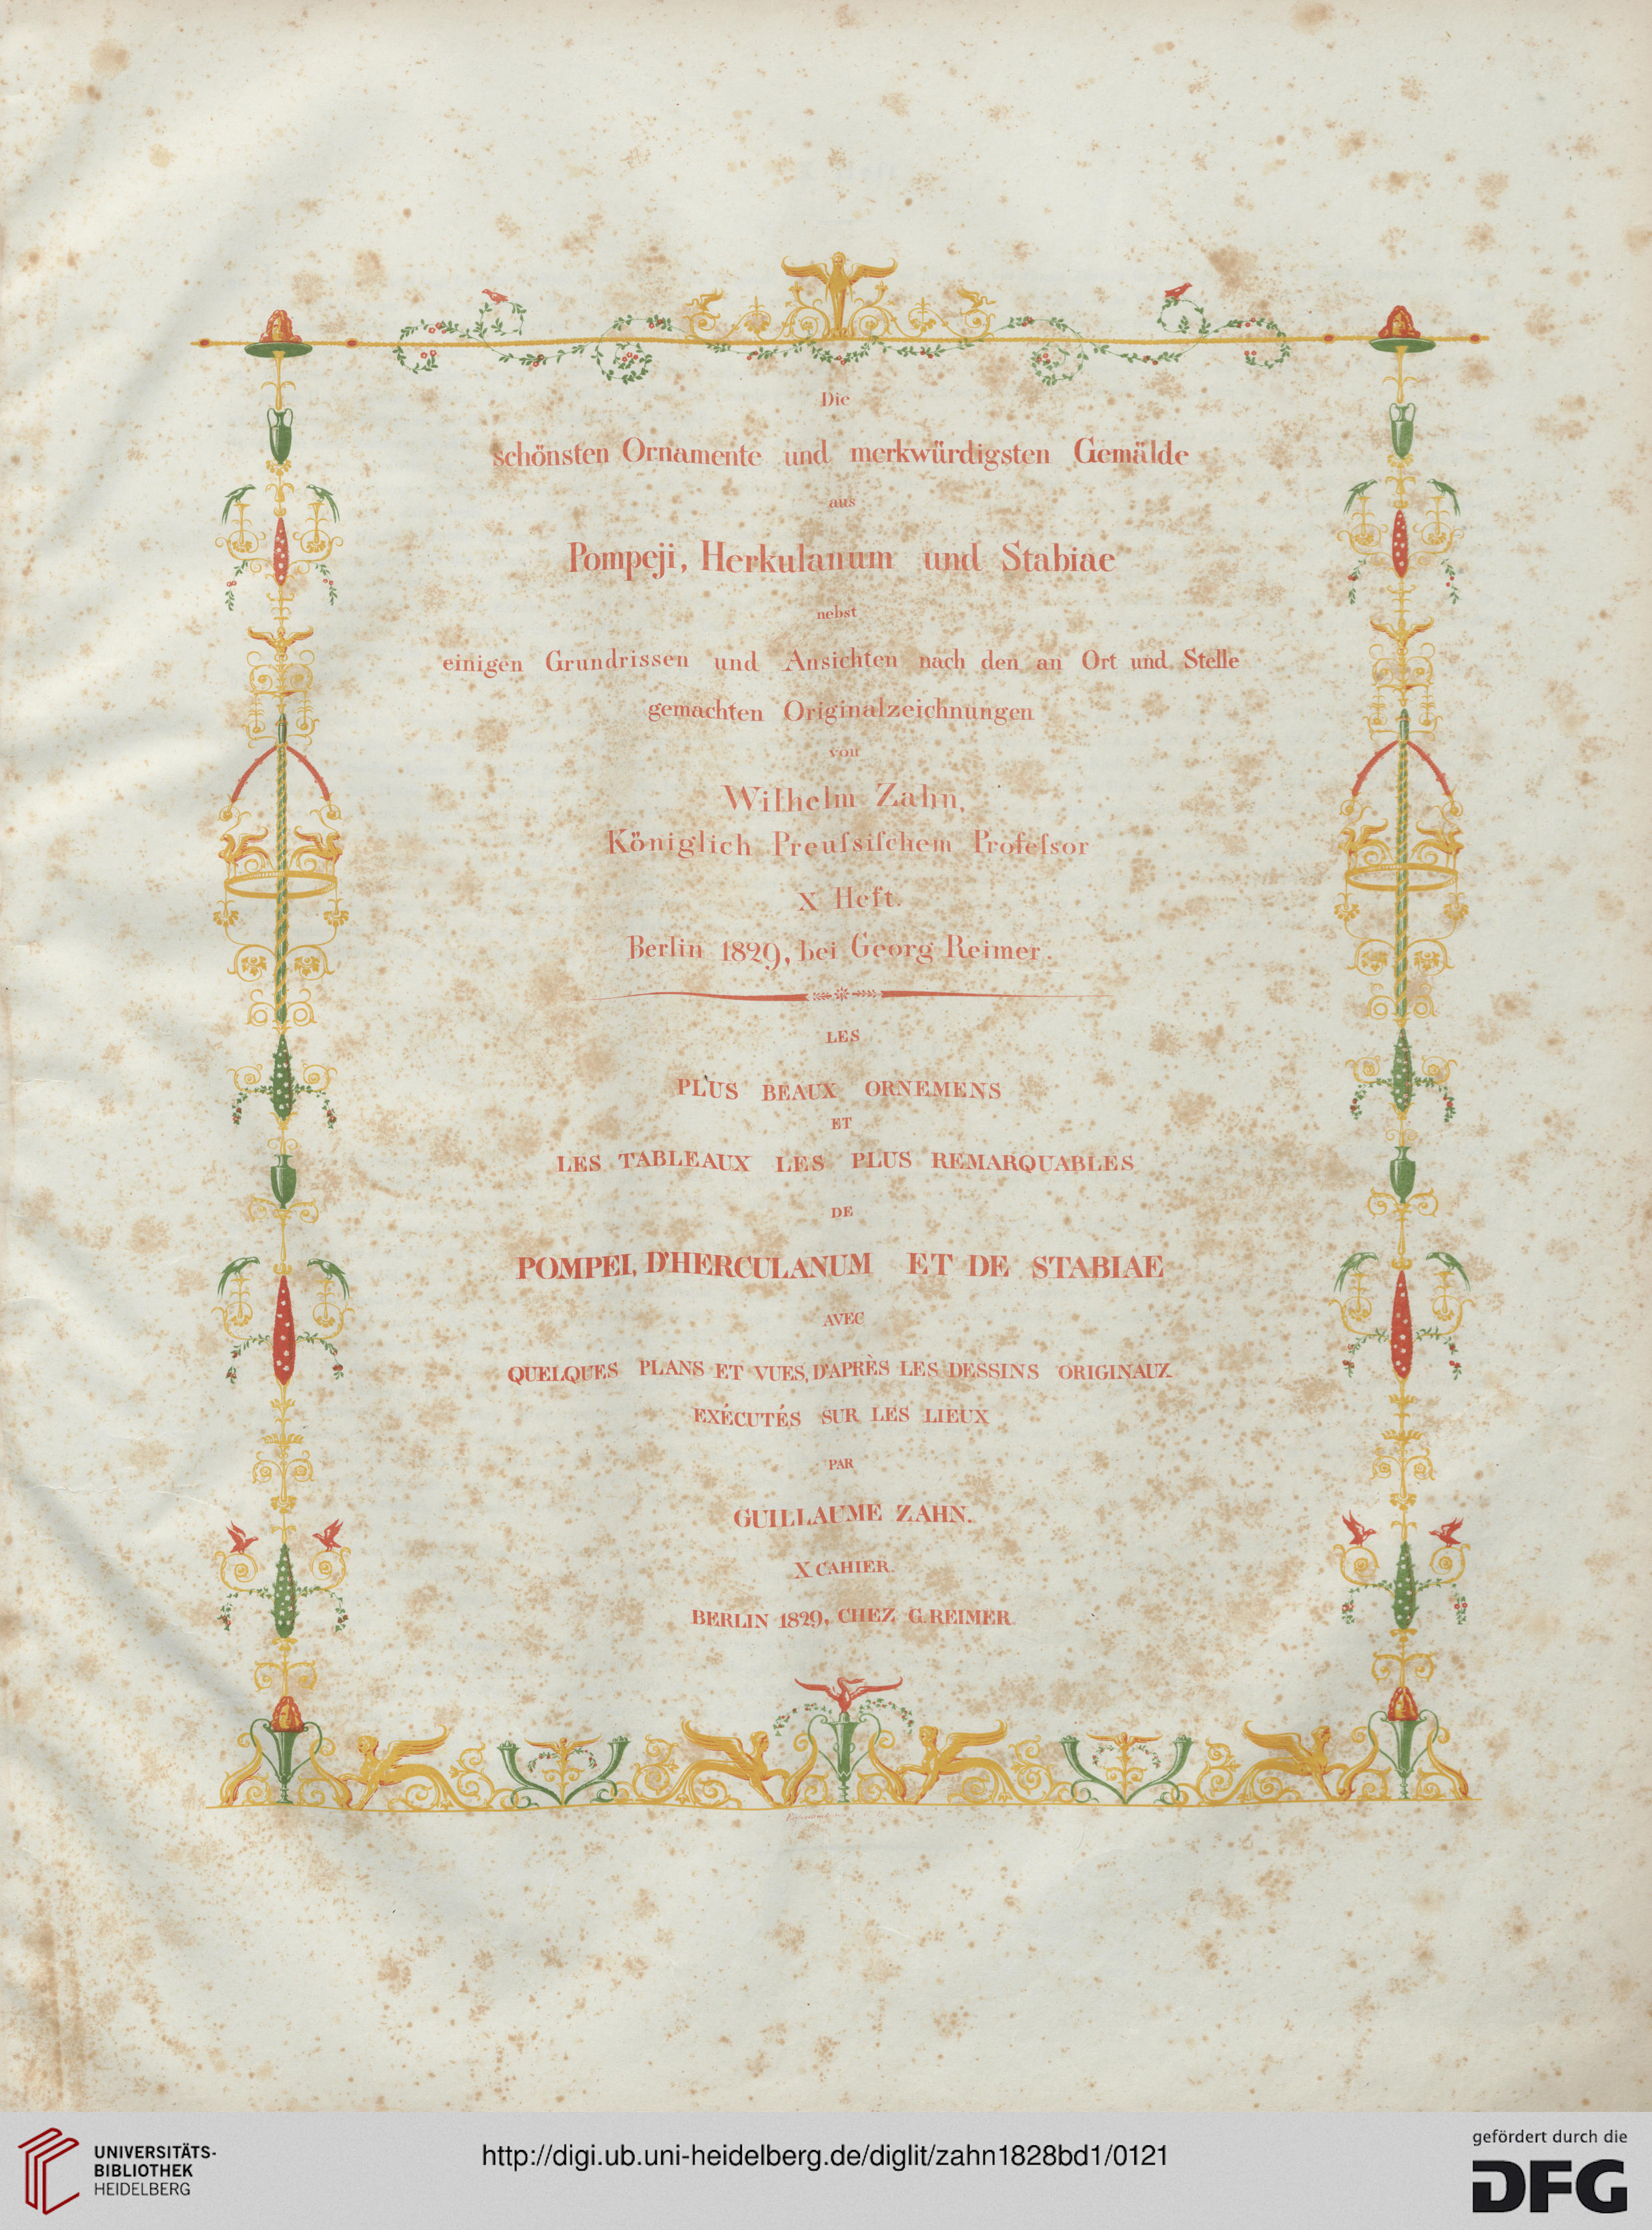 Die
schönsten Ornamente und merkwürdigsten Gemälde
aus
Pompeji, Herkulanum und Stabiae
nebst
einigen Grundrissen und Ansichten nach den an Ort und Stelle
gemachten Originalzeichnungen
von
Wilhelm Zahn,
Königlich Preuſsiſchem Profeſsor
X Heft.
Berlin 1829, bei Georg Reimer.
LES
PLUS BEAUX ORNEMENS
ET
LES TABLEAUX LES PLUS REMARQUABLES
DE
POMPEI, D'HERCULANUM ET DE STABIAE
AVEC
QUELQUES PLANS ET VUES, D'APRÈS LES DESSINS ORIGINAUX
EXÉCUTÉS SUR LES LIEUX
PAR
GUILLAUME ZAHN.
X CAHIER.
BERLIN 1829, CHEZ G. REIMER.
UNIVERSITÄTS-
BIBLIOTHEK
HEIDELBERG
http://digi.ub.uni-heidelberg.de/diglit/zahn1828bd1/0121
gefördert durch die
DFG